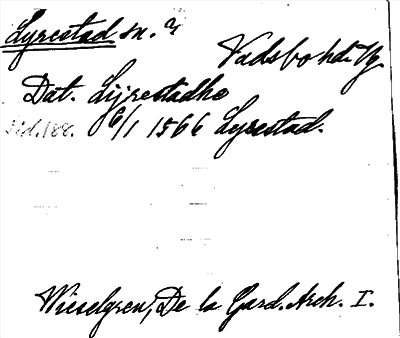 Lyrestad sn.
Vadsbo hd. Vg.
Dat. Lijrestadho
Sid. 188. 6/1 1566 Lyrestad.
Wieselgren, De la Gard. Arch. I.